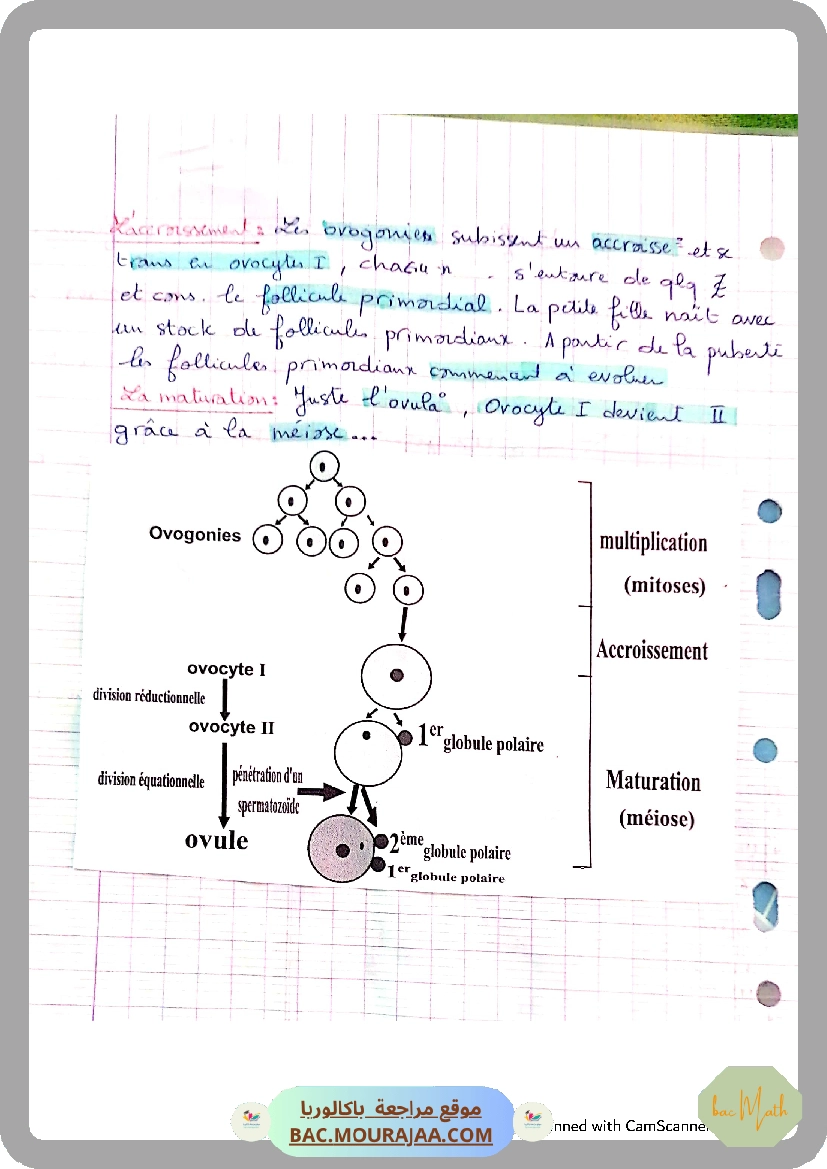 L'accroissement : Les ovogonies subissent un accroisse^t et se
trans en ovocytes I, chacun s'entoure de qlq
et cons. le follicule primordial. La petite fille naît avec
un stock de follicules primordiaux. A partir de la puberté
les follicules primordiaux commencent à evoluer
La maturation : Juste l'ovula°, Ovocyte I devient II
grâce à la méiose...
Ovogonies
multiplication
(mitoses)
Accroissement
ovocyte I
division réductionnelle
ovocyte II
1er globule polaire
division équationnelle
pénétration d'un
spermatozoïde
Maturation
(méiose)
ovule
2ème globule polaire
1er globule polaire
موقع مراجعة باكالوريا
BAC.MOURAJAA.COM
nned with CamScanner
bac Math